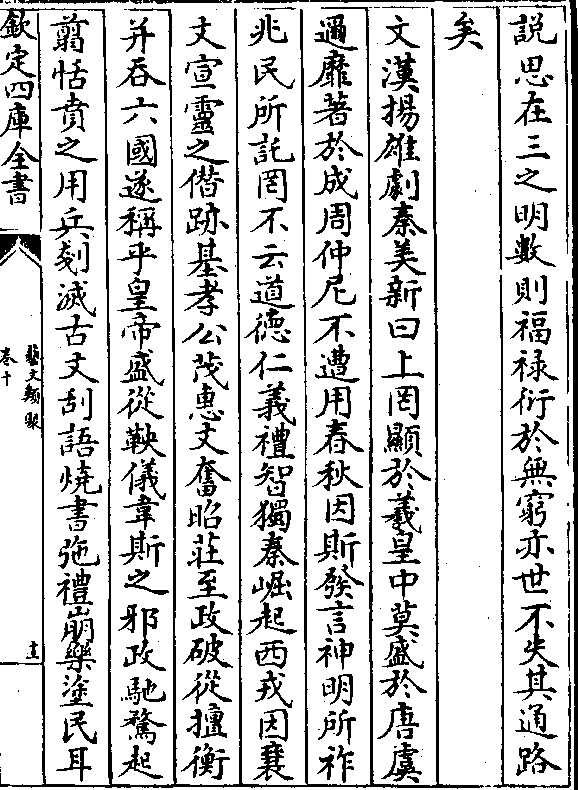 說思在三之明數則福禄衍於無窮亦世不失其通路
矣
文漢揚雄劇秦美新曰上罔顯於羲皇中莫盛於唐虞
邇靡著於成周仲尼不遭用春秋因斯發言神明所祚
兆民所託罔不云道德仁義禮智獨秦崛起西戎因襄
文宣靈之僭跡基孝公茂惠文奮昭莊至政破從擅衡
并吞六國遂稱乎皇帝盛從鞅儀韋斯之邪政馳騖起
翦恬賁之用兵剗滅古文刮語燒書弛禮崩樂塗民耳
欽定四庫全書
藝文類聚
卷十